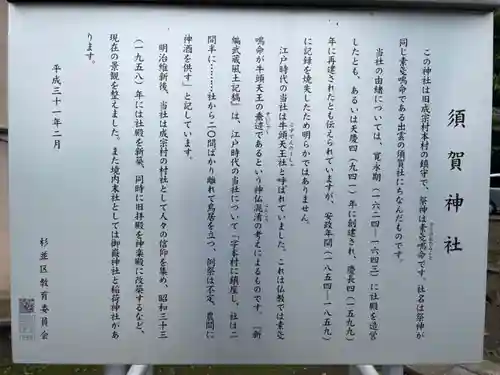 須賀神社
この神社は旧成宗村本村の鎮守で、祭神は素戔嗚命です。社名は祭神が
同じ素戔嗚命である出雲の須賀社にちなんだものです。
当社の由緒については、寛永期（一六二四―一六四三）に社殿を造営
したとも、あるいは天慶四（九四一）年に創建され、慶長四（一五九九）
年に再建されたとも伝えられていますが、安政年間（一八五四―一八五九）
に記録を焼失したため明らかではありません。
江戸時代の当社は牛頭天王社と呼ばれていました。これは仏教では素戔
嗚命が牛頭天王の垂迹であるという神仏混淆の考えによるものです。『新
編武蔵風土記稿』は、江戸時代の当社について「字本村に鎮座し、社は二
間半に………社から二〇間ばかり離れて鳥居を立つ、例祭は不定、農間に
神酒を供す」と記しています。
明治維新後、当社は成宗村の村社として人々の信仰を集め、昭和三十三
（一九五八）年には社殿を新築、同時に旧拝殿を神楽殿に改築するなど、
現在の景観を整えました。また境内末社としては御嶽神社と稲荷神社があ
ります。
平成三十一年二月
杉並区教育委員会